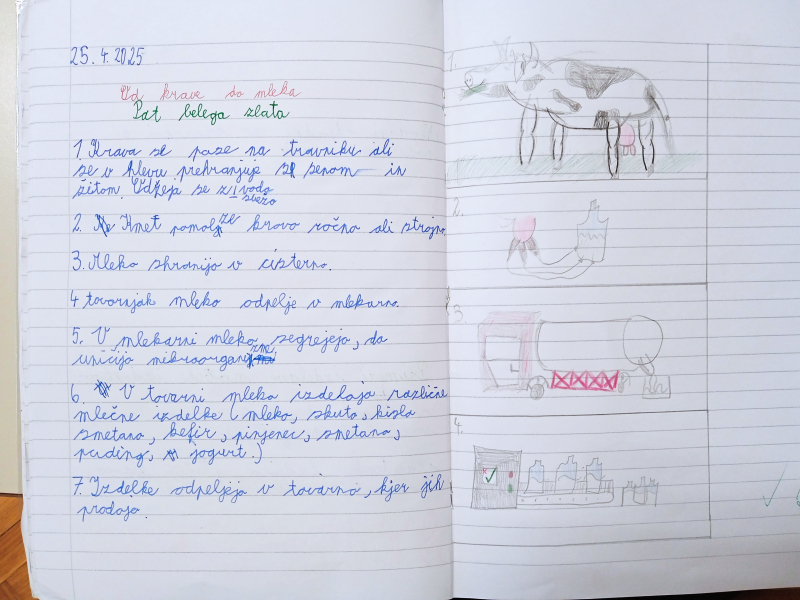 25.4.2025
Od krave do mleka
Pot belega zlata
1. Krava se pase na travniku ali
se v hlevu prehranjuje s senom in
žitom. Odžeja se z vodo
svežo
2. Kmet pomolze kravo ročno ali strojno
3. Mleko shranijo v cisterno.
4 tovornjak mleko odpelje v mlekarno.
5. V mlekarni mleko segrejejo, da
uničijo mikroorganizme
6. V tovarni mleka izdelajo različne
mlečne izdelke (mleko, skuta, kisla
smetana, kefir, pinjenec, smetana,
puding, jogurt.)
7. Izdelke odpeljejo v tovarno, kjer jih
prodajo.
1.
2.
3.
4.